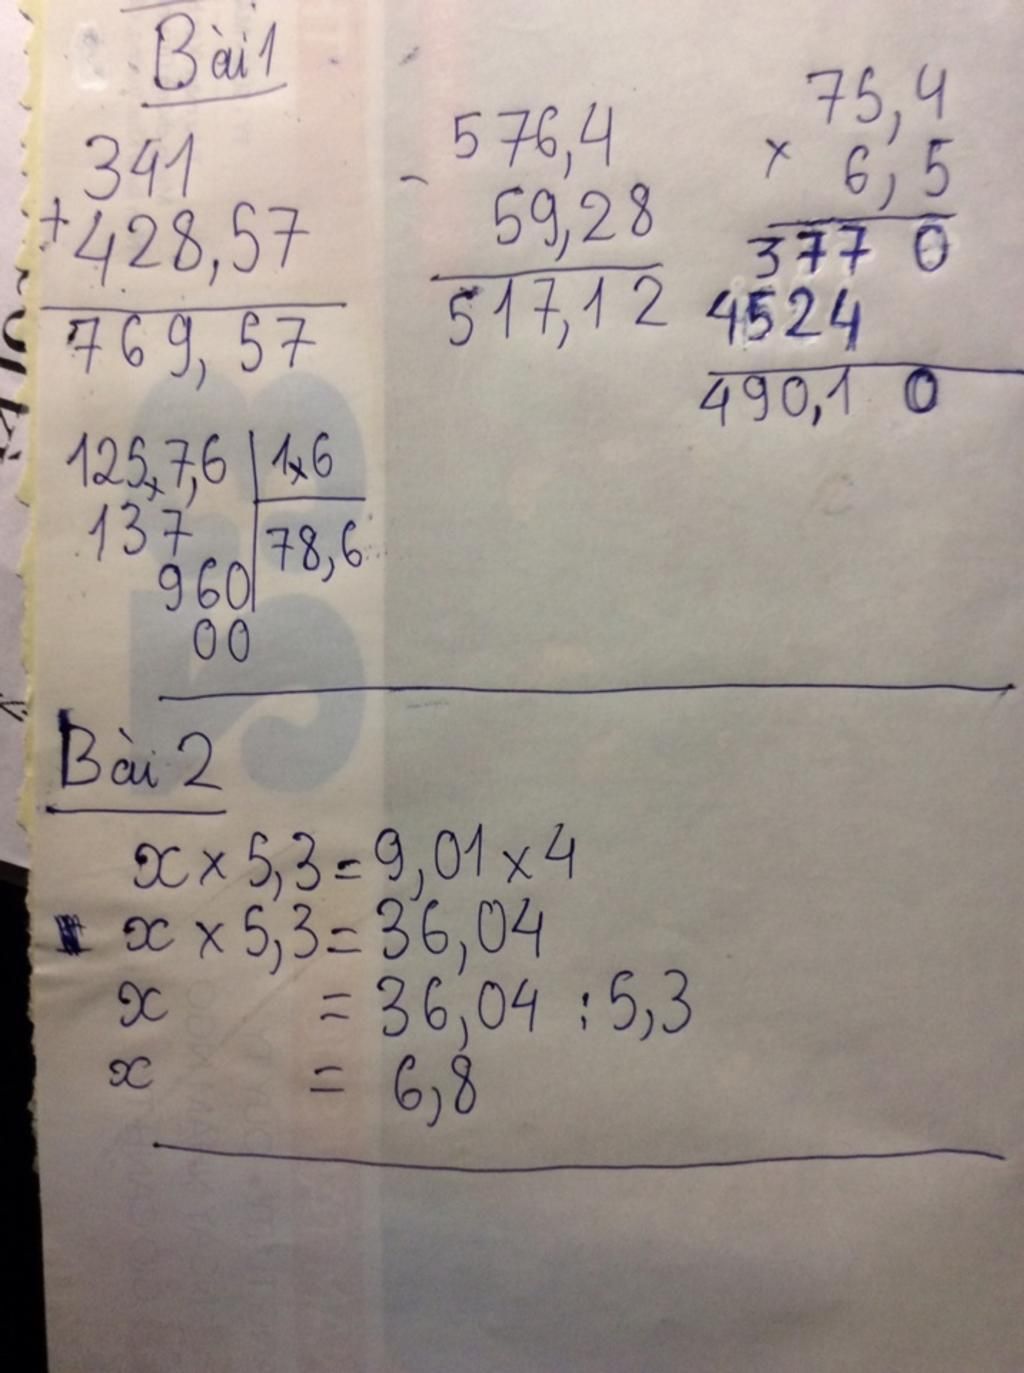 Bài 1
341
+ 428,57
769,57
- 576,4
59,28
517,12
75,4
x 6,5
377 0
4524
490,1 0
125,7,6 | 1,6
137 | 78,6
960
00
Bài 2
x × 5,3 = 9,01 × 4
x × 5,3 = 36,04
x = 36,04 : 5,3
x = 6,8